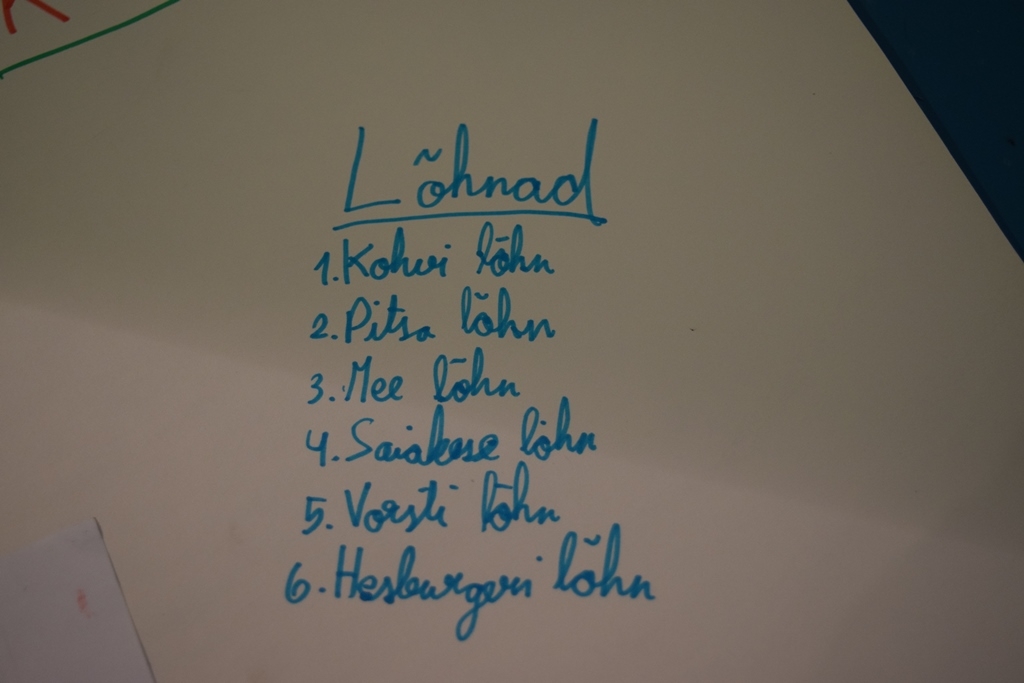 Lõhnad
1. Kohvi lõhn
2. Pitsa lõhn
3. Mee lõhn
4. Saiakese lõhn
5. Vorsti lõhn
6. Hesburgeri lõhn